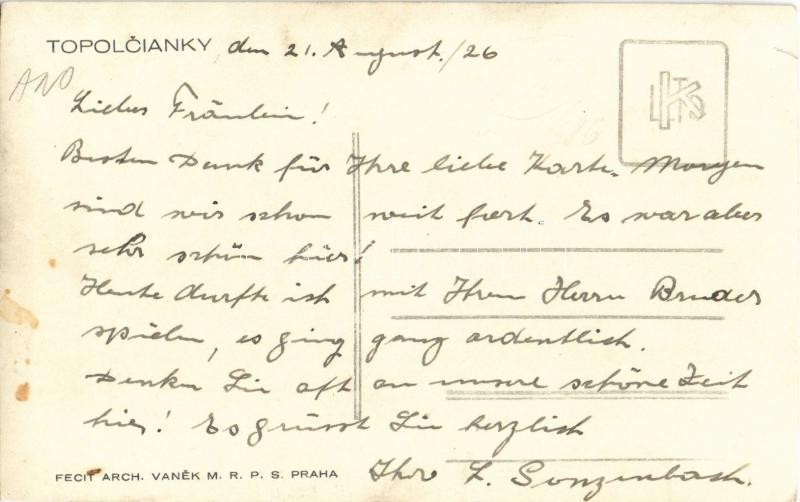 TOPOLČIANKY, den 21. August./26
ANO
Liebes Fräulein!
Besten Dank für Ihre liebe Karte. Morgen
sind wir schon weit fort. Es war aber
sehr schön hier!
Heute durfte ich mit Ihrem Herrn Bruder
spielen, es ging ganz ordentlich.
Denken Sie oft an unsere schöne Zeit
hier! Es grüsst Sie herzlich
Ihre L. Sonzenbach.
FECIT ARCH. VANĚK M. R. P. S. PRAHA